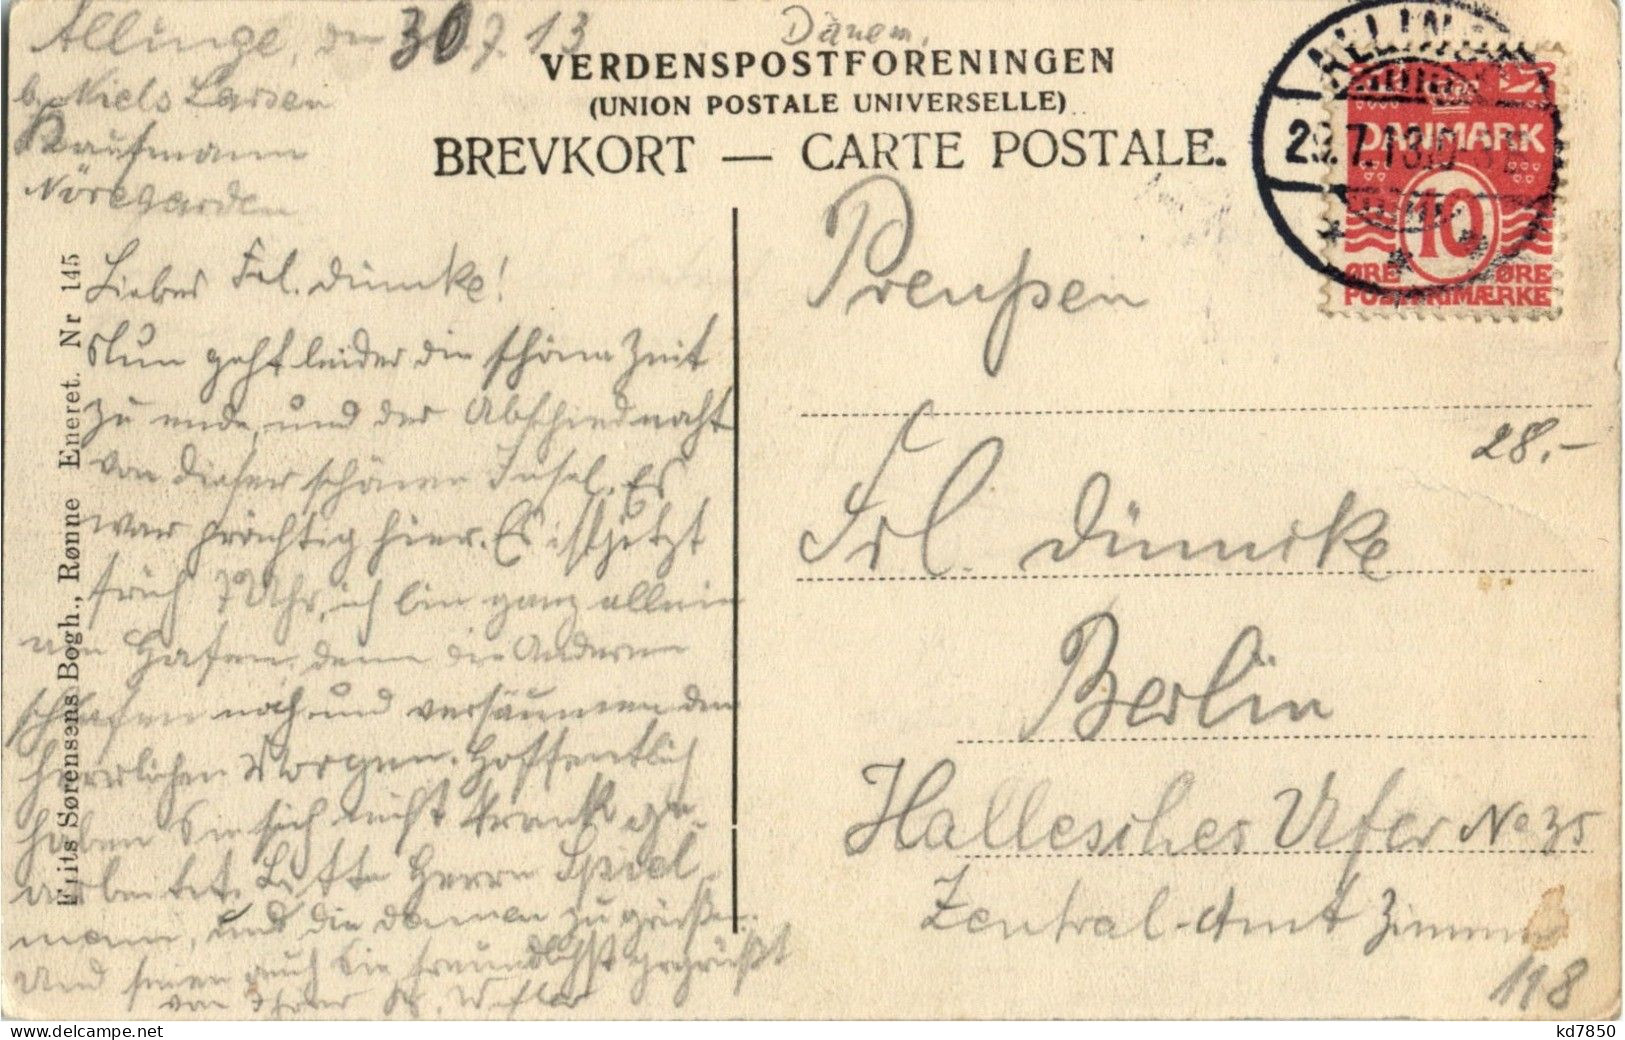 Allinge, den 30.7.13
Dänem.
b. Niels Larsen
Kaufmann
Nöregarden
VERDENSPOSTFORENINGEN
(UNION POSTALE UNIVERSELLE)
BREVKORT — CARTE POSTALE.
ALLINGE
29.7.13
DANMARK
10
ØRE ØRE
POSTFRIMÆRKE
Frits Sørensens Bogh., Rønne Eneret. Nr 145
Liebes Frl. Dümcke!
Nun geht leider die schöne Zeit
zu ende, und der Abschied naht
von dieser schönen Insel. Es
war prächtig hier. Es ist jetzt
früh 7 Uhr, ich bin ganz allein
am Hafen, denn die Anderen
schlafen noch und versäumen den
herrlichen Morgen. Hoffentlich
haben Sie sich nicht krank ge-
arbeitet. Bitte Herrn Spiel
mann, und die Damen zu grüßen.
Und seien auch Sie freundlichst gegrüßt
von Ihrer
Preußen
Frl. Dümcke
Berlin
Hallesches Ufer No 35
Zentral-Amt Zimmer
118
28.-
kd7850